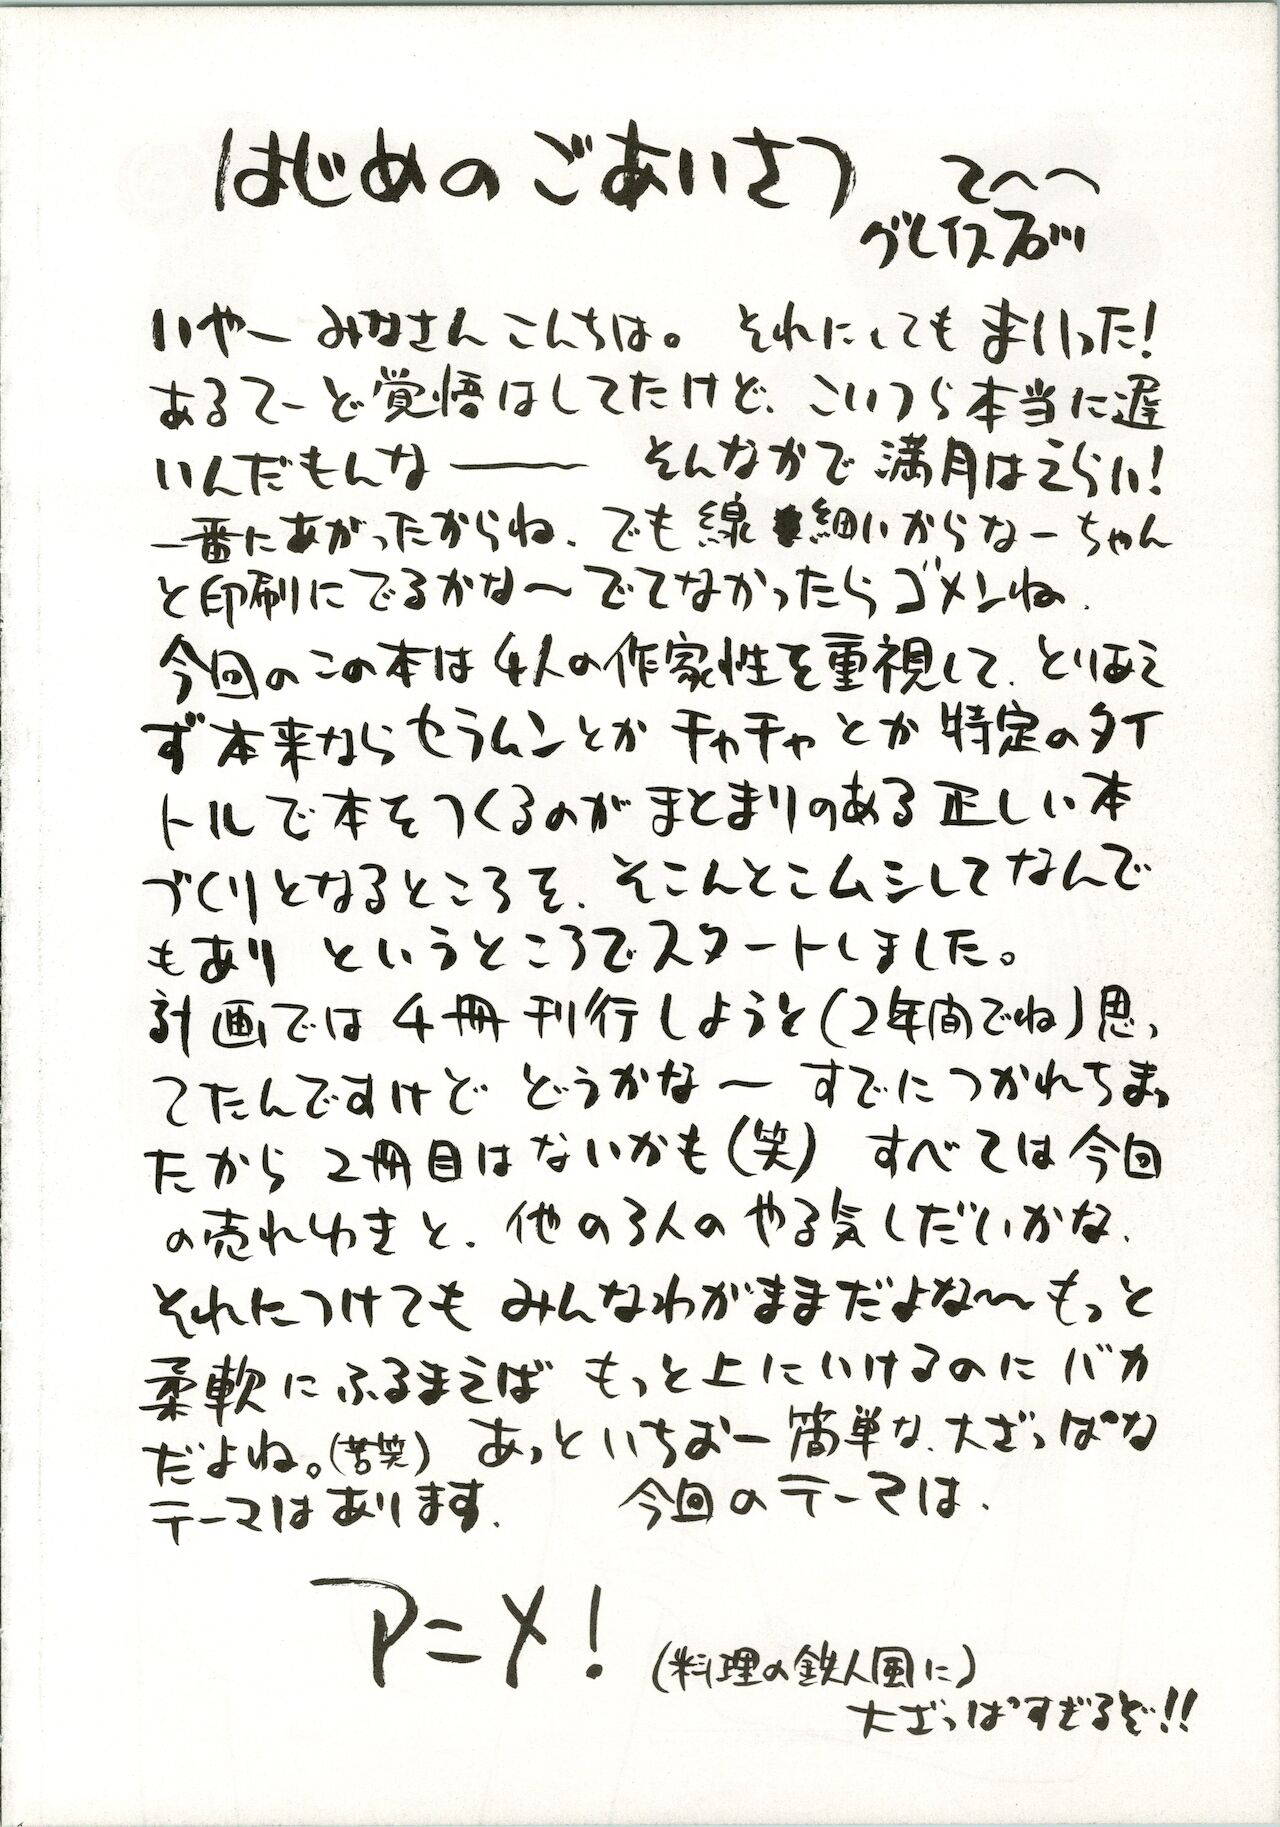 はじめのごあいさつ てへへ
グレイス
いやー みなさんこんちは。 それにしてもまいった!
あるてーど覚悟はしてたけど、こいつら本当に遅
いんだもんなー そんなかで満月はえらい!
一番にあがったからね、でも線細いからなーちゃん
と印刷にでるかな〜でてなかったらゴメンね、
今回のこの本は4人の作家性を重視して、とりあえ
ず本来ならセラムンとかチャチャとか特定のタイ
トルで本をつくるのがまとまりのある正しい本
づくりとなるところを、そこんとこムシしてなんで
もあり というところでスタートしました。
計画では4冊刊行しようと(2年間でね)思っ
てたんですけど どうかな〜 すでにつかれちまっ
たから 2冊目はないかも(笑) すべては今回
の売れゆきと、他の3人のやる気しだいかな、
それにつけても みんなわがままだよな〜もっと
柔軟にふるまえば もっと上にいけるのにバカ
だよね。(苦笑) あっといちおー簡単な、大ざっぱな
テーマはあります、 今回のテーマは、
アニメ!
(料理の鉄人風に)
大ざっぱすぎるぞ!!